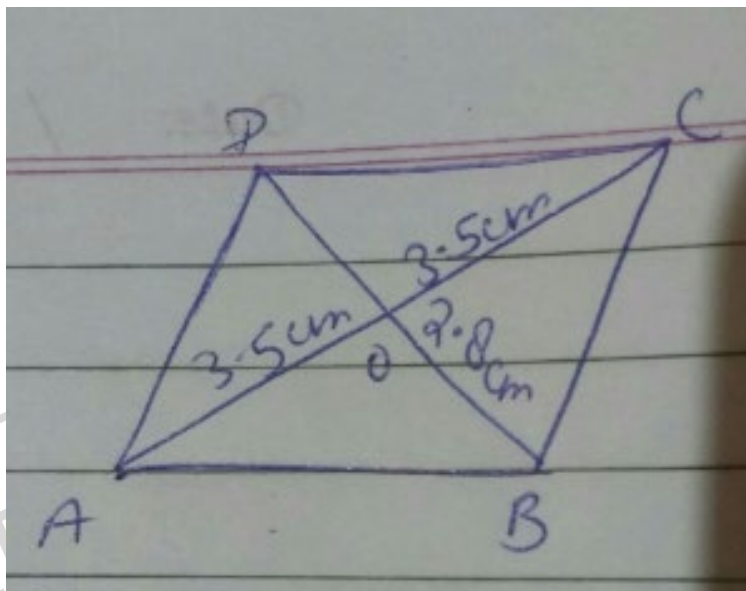 D
C
3.5cm
3.5cm
2.8cm
O
A
B